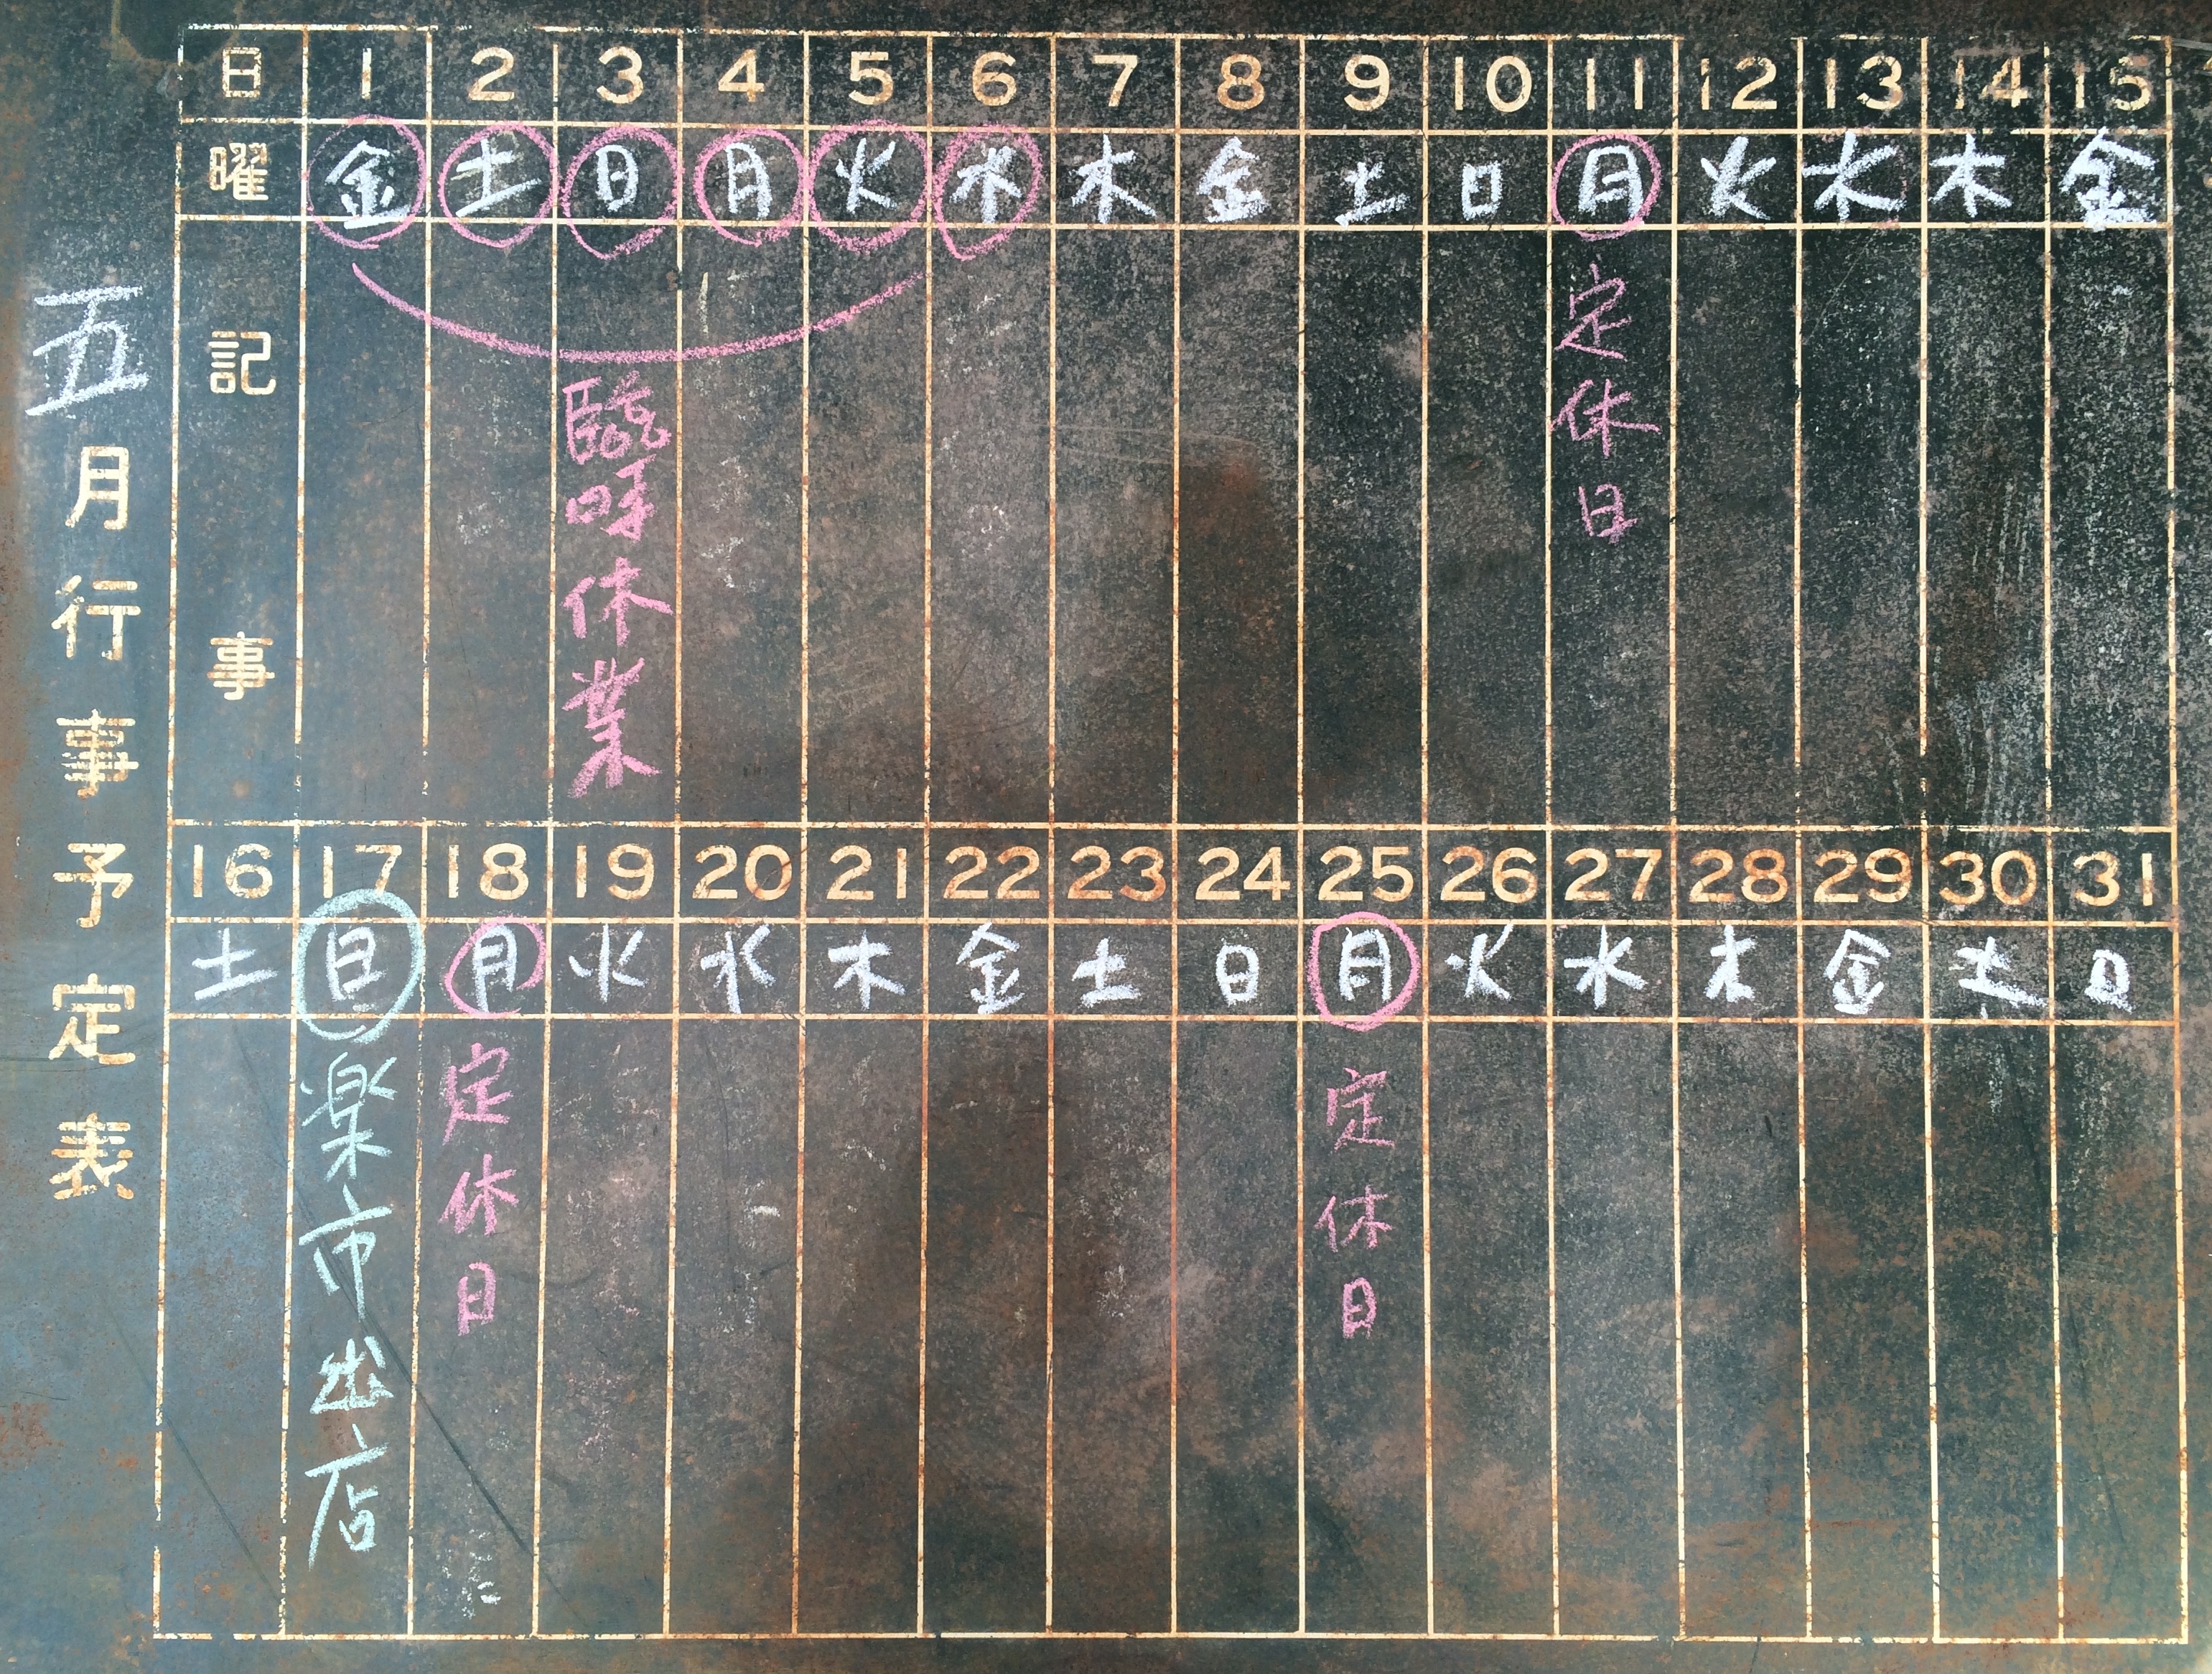 五月行事予定表
日 1 2 3 4 5 6 7 8 9 10 11 12 13 14 15
曜 金 土 日 月 火 水 木 金 土 日 月 火 水 木 金
記事
臨時休業
定休日
16 17 18 19 20 21 22 23 24 25 26 27 28 29 30 31
土 日 月 火 水 木 金 土 日 月 火 水 木 金 土 日
楽市出店
定休日
定休日